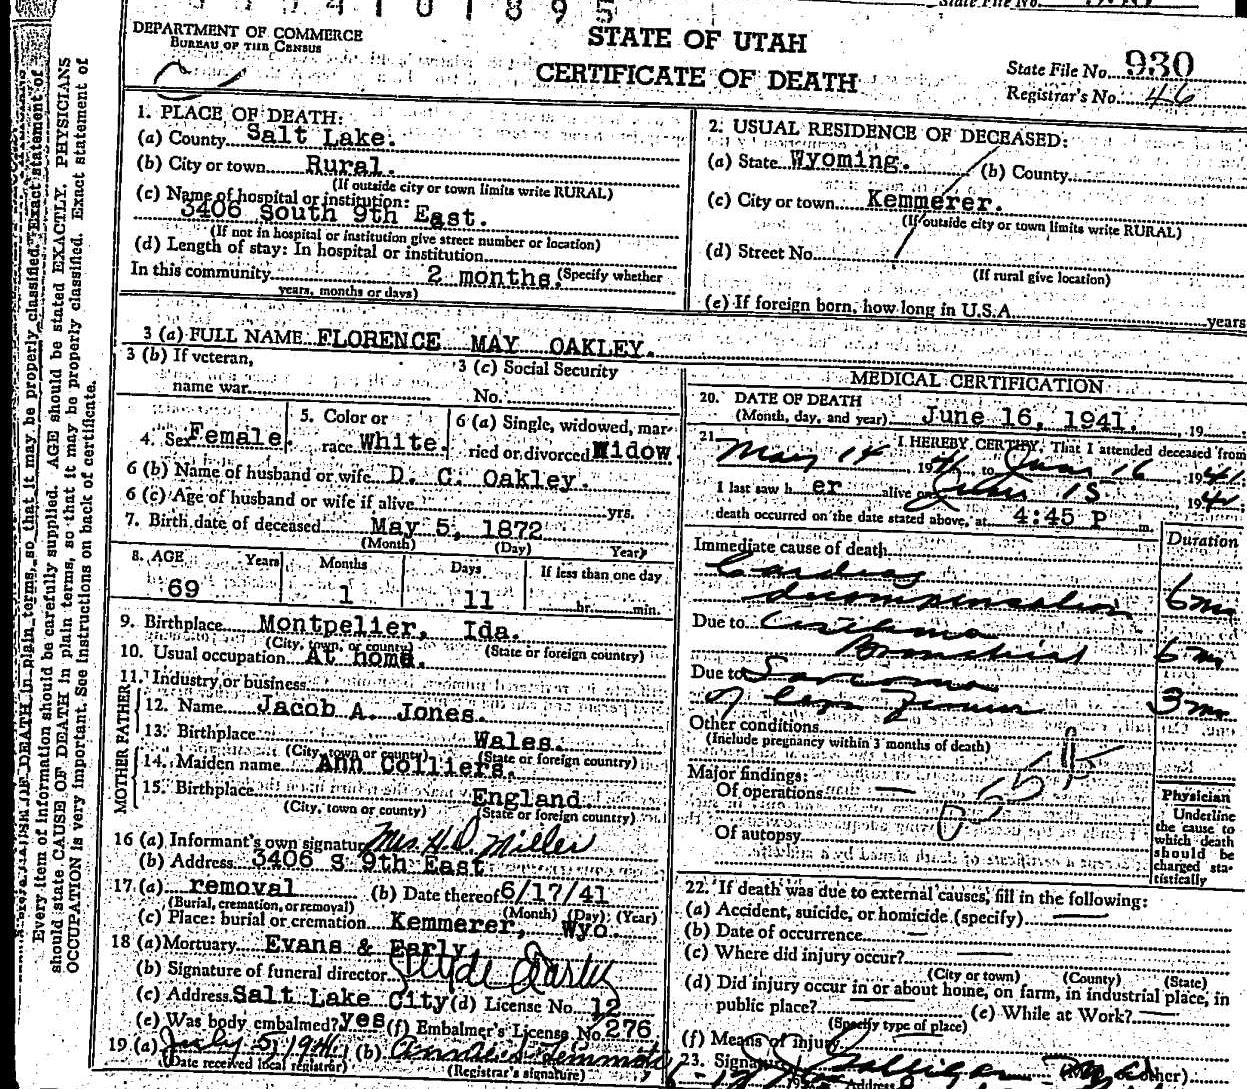 DEPARTMENT OF COMMERCE
BUREAU OF THE CENSUS
STATE OF UTAH
CERTIFICATE OF DEATH
State File No. 930
Registrar's No. 46
Every item of information should be carefully supplied. AGE should be stated EXACTLY. PHYSICIANS
should state CAUSE OF DEATH in plain terms, so that it may be properly classified. Exact statement of
OCCUPATION is very important. See instructions on back of certificate.
1. PLACE OF DEATH:
(a) County Salt Lake.
(b) City or town Rural.
(If outside city or town limits write RURAL)
(c) Name of hospital or institution:
3406 South 9th East.
(If not in hospital or institution give street number or location)
(d) Length of stay: In hospital or institution
In this community 2 months. (Specify whether
years, months or days)
2. USUAL RESIDENCE OF DECEASED:
(a) State Wyoming. (b) County
(c) City or town Kemmerer.
(If outside city or town limits write RURAL)
(d) Street No.
(If rural give location)
(e) If foreign born, how long in U.S.A. years
3 (a) FULL NAME FLORENCE MAY OAKLEY.
3 (b) If veteran, name war
3 (c) Social Security No.
4. Sex Female.
5. Color or race White.
6 (a) Single, widowed, married or divorced Widow
6 (b) Name of husband or wife D. C. Oakley.
6 (c) Age of husband or wife if alive yrs.
7. Birth date of deceased May 5, 1872
(Month) (Day) Year)
8. AGE Years Months Days If less than one day
69 1 11 hr. min.
9. Birthplace Montpelier, Ida.
(City, town, or county) (State or foreign country)
10. Usual occupation At home.
11. Industry or business
FATHER
12. Name Jacob A. Jones.
13. Birthplace Wales.
(City, town or county) (State or foreign country)
MOTHER
14. Maiden name Ann Colliers.
15. Birthplace England.
(City, town or county) (State or foreign country)
16 (a) Informant's own signature Mrs. H. D. Miller
(b) Address 3406 S 9th East
17. (a) removal (b) Date thereof 6/17/41
(Burial, cremation, or removal) (Month) (Day) (Year)
(c) Place: burial or cremation Kemmerer, Wyo.
18 (a) Mortuary Evans & Early
(b) Signature of funeral director
(c) Address Salt Lake City (d) License No. 12
(e) Was body embalmed? yes (f) Embalmer's License No. 276
19 (a) July 5, 1941 (b)
(Date received local registrar) (Registrar's signature)
MEDICAL CERTIFICATION
20. DATE OF DEATH
(Month, day, and year) June 16, 1941. , 19
21. I HEREBY CERTIFY, That I attended deceased from
May 14 1941 to June 16 1941
I last saw her alive on June 15 1941
death occurred on the date stated above, at 4:45 P m.
Duration
Immediate cause of death
Cardiac
decompensation 6 mo
Due to Asthma
Bronchial 6 m
Due to Sarcoma
of left Femur 3 mo
Other conditions
(Include pregnancy within 3 months of death)
Major findings:
Of operations
Of autopsy
Physician
Underline
the cause to
which death
should be
charged sta-
tistically
22. If death was due to external causes, fill in the following:
(a) Accident, suicide, or homicide (specify)
(b) Date of occurrence
(c) Where did injury occur?
(City or town) (County) (State)
(d) Did injury occur in or about home, on farm, in industrial place, in
public place? (e) While at Work?
(Specify type of place)
(f) Means of injury
23. Signature